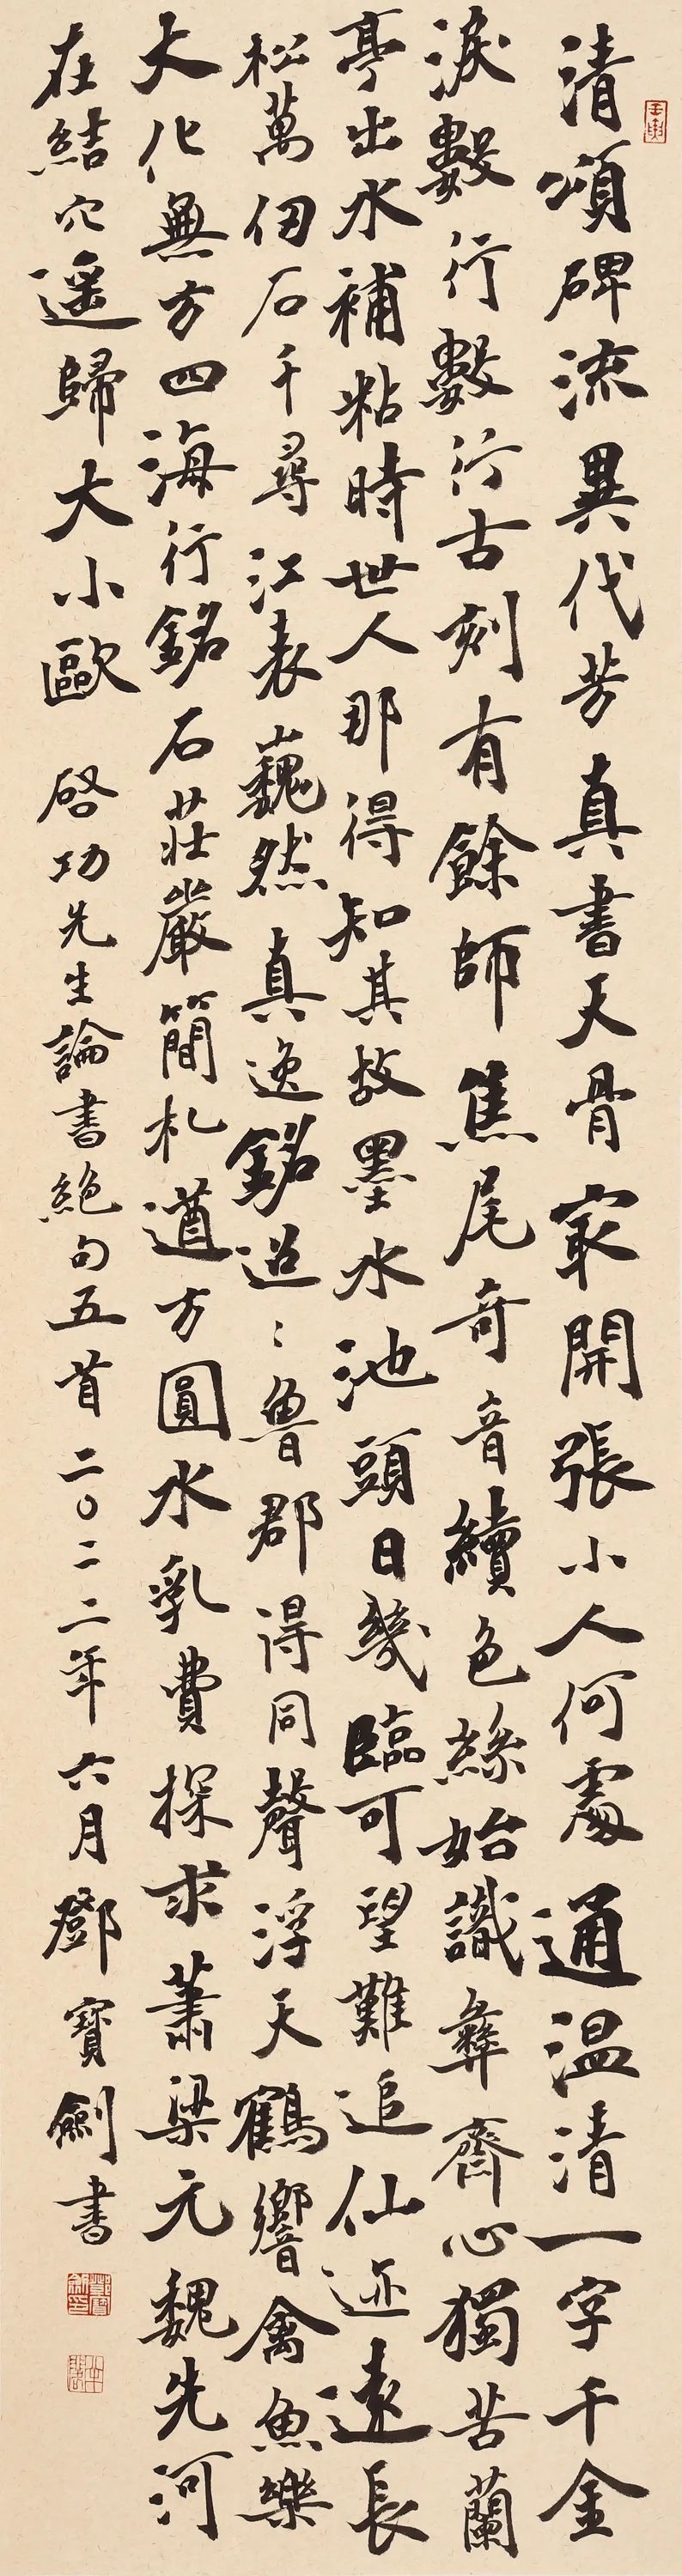 清頌碑流異代芳真書天骨冣開張小人何處通温清一字千金
淚數行數行古刻有餘師焦尾奇音續色絲始識彝齋心獨苦蘭
亭出水補粘時世人那得知其故墨水池頭日幾臨可望難追仙迹遠長
松萬仞石千尋江表巍然真逸銘迢〻魯郡得同聲浮天鶴響禽魚樂
大化無方四海行銘石莊嚴簡札遒方圓水乳費探求蕭梁元魏先河
在結穴遥歸大小歐 啓功先生論書絶句五首 二〇二二年六月鄧寶劍書